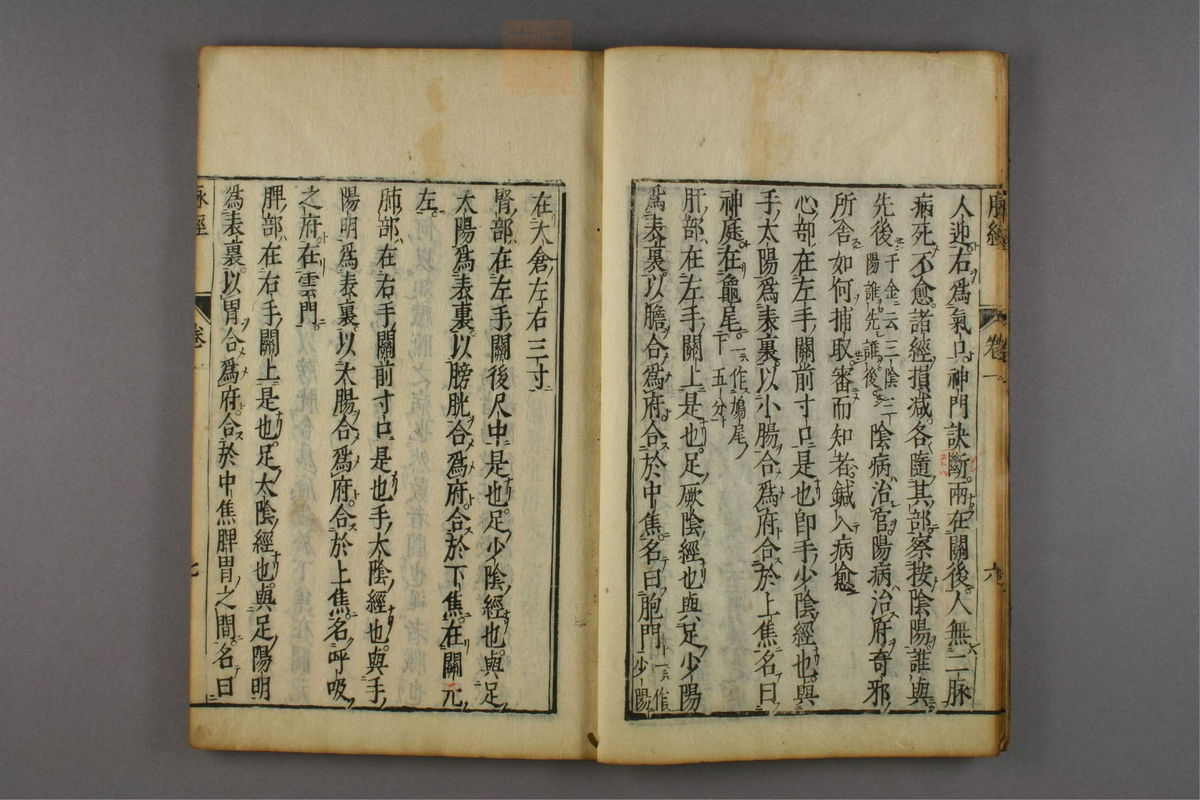 脉經 卷一 六
人迎右爲氣口神門訣斷兩在關後人無二脉
病死不愈諸經損減各隨其部察按陰陽誰與
先後千金云三陰三陽誰先誰後陰病治官陽病治府奇邪
所舍如何捕取審而知者鍼入病愈
心部在左手關前寸口是也卽手少陰經也與
手太陽爲表裏以小腸合爲府合於上焦名曰
神庭在龜尾一作鳩尾下五分
肝部在左手關上是也足厥陰經也與足少陽
爲表裏以膽合爲府合於中焦名曰胞門一作少陽
在大倉左右三寸
腎部在左手關後尺中是也足少陰經也與足
太陽爲表裏以膀胱合爲府合於下焦在關元
左
肺部在右手關前寸口是也手太陰經也與手
陽明爲表裏以大腸合爲府合於上焦名呼吸
之府在雲門
脾部在右手關上是也足太陰經也與足陽明
爲表裏以胃合爲府合於中焦脾胃之間名曰
脉經 卷一 七